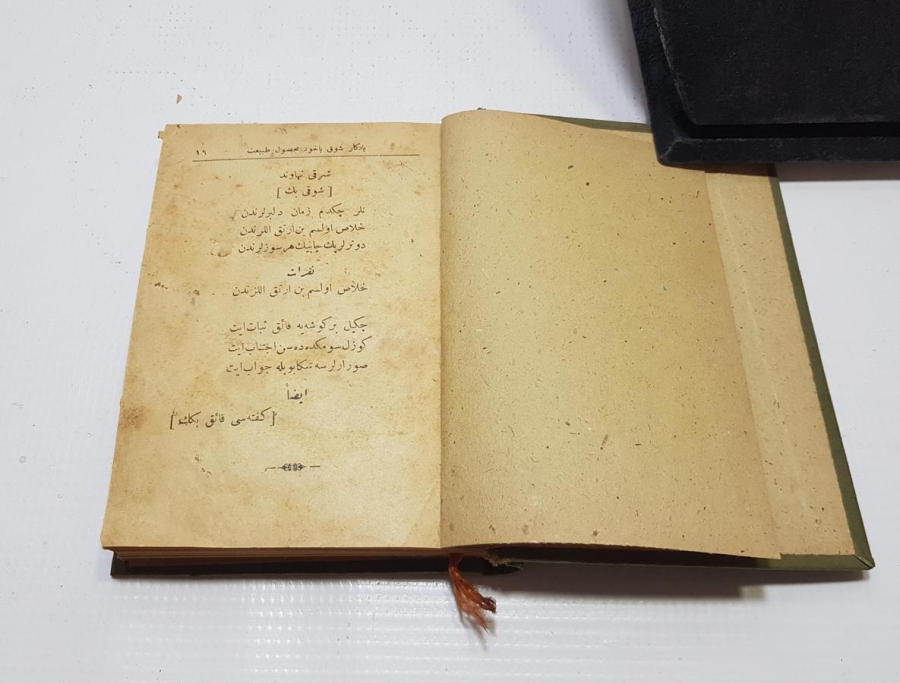 یادکار شوقی یاخود محصول طبیعت ١٦
شرقی نهاوند
[ شوقی بك ]
نلر چکدم زمان دلبرلرندن
خلاص اولسم بن ارتق اللرندن
دونرلر پك چابیك هر سوزلرندن
نقرات
خلاص اولسم بن ارتق اللرندن
چکیل بر کوشه‌یه فائق ثبات ایت
کوزل سومکده‌ده سن اجتناب ایت
صورارلرسه سکا بویله جواب ایت
ایضاً
[ کفته‌سی فائق بکك ]